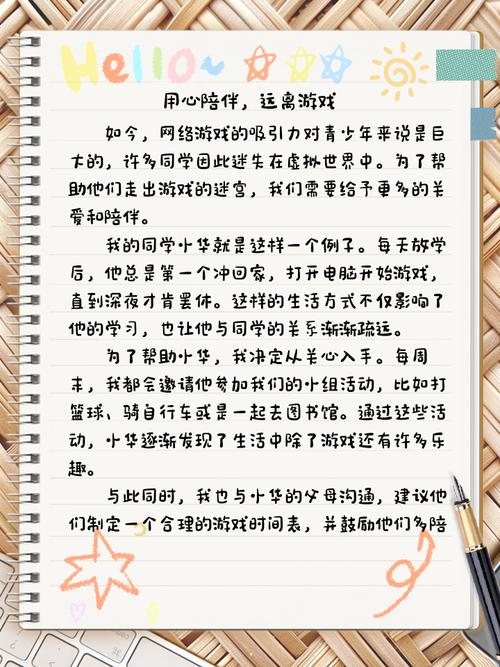 Hello~
用心陪伴，远离游戏
如今，网络游戏的吸引力对青少年来说是巨
大的，许多同学因此迷失在虚拟世界中。为了帮
助他们走出游戏的迷宫，我们需要给予更多的关
爱和陪伴。
我的同学小华就是这样一个例子。每天放学
后，他总是第一个冲回家，打开电脑开始游戏，
直到深夜才肯罢休。这样的生活方式不仅影响了
他的学习，也让他与同学的关系渐渐疏远。
为了帮助小华，我决定从关心入手。每周
末，我都会邀请他参加我们的小组活动，比如打
篮球、骑自行车或是一起去图书馆。通过这些活
动，小华逐渐发现了生活中除了游戏还有许多乐
趣。
与此同时，我也与小华的父母沟通，建议他
们制定一个合理的游戏时间表，并鼓励他们多陪